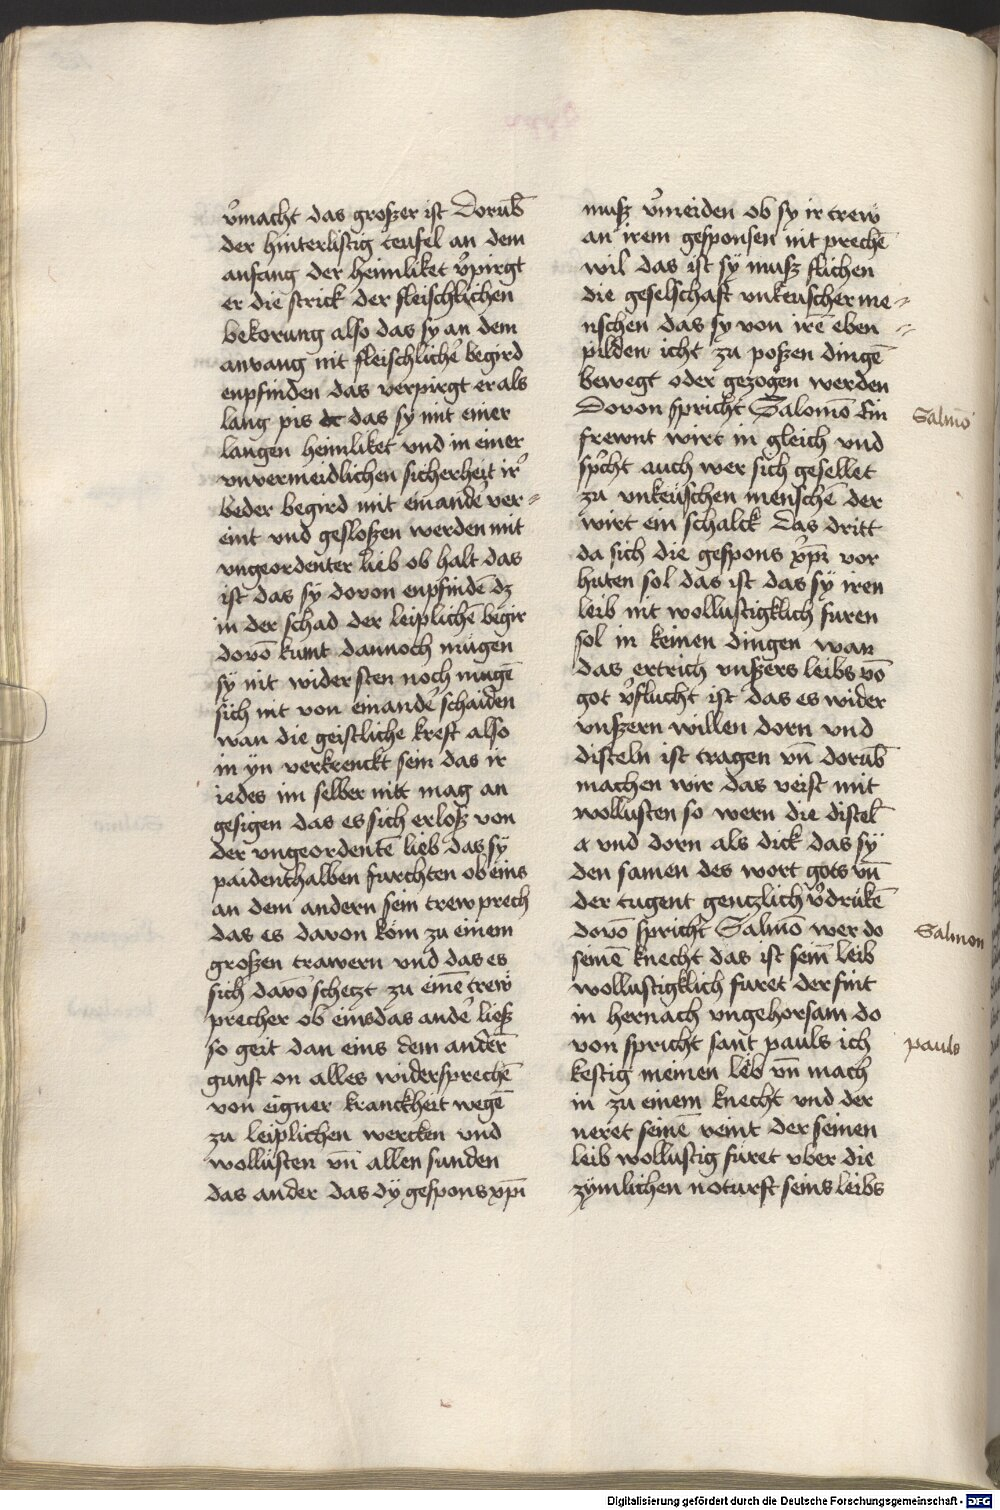 v̓macht das groſzer iſt Dorūb
der hinterliſtig teufel an dem
anfang der heimliket v̓pirgt
er die ſtrick der fleiſchlichen
bekorung alſo das ſy an dem
anvang nit fleiſchlicher̓ begird
enpfinden das verpirgt er als
lang pis das ſy mit einer
langen heimliket vnd in einer
vnvermeidlichen ſicherheit ir̓
beder begird mit einander̓ ver⸗
eint vnd geſloſzen werden mit
vngeordenter lieb ob halt das
iſt das ſy dovon enpfindē dz
in der ſchad der leiplichē begir
dovō kumt dannoch mügen
ſÿ nit widerſten noch mugē
ſich nit von einander̓ ſchaiden
wan die geiſtliche kreft alſo
in yn verkrenckt ſein das ir
iedes im ſelber nitt mag an
geſigen das es ſich erloſz von
der vngeordentē lieb das ſÿ
paidenthalben furchten ob eins
an dem andern ſein trew prech
das es davon kom zu einem
groſzen trawern vnd das es
ſich davō ſchetzt zu einē trew
precher ob eins das ander̓ lieſz
ſo geit dan eins dem andern̄
gunſt on alles widerſprechē
von eigner kranckheit wegē
zu leiplichen wercken vnd
wolluſten vn̄ allen ſunden
das ander das dÿ geſpons xp̄i
muſz v̓meiden ob ſy ir trew
an irem geſponſen nit prechē
wil das iſt ſÿ muſz flichen
die geſelſchaft vnkeuſcher me⸗
nſchen das ſy von irē eben
pilden icht zu poſzen dingē
bewegt oder gezogen werden
Dovon ſpricht Salomō Ein
frewnt wirt in gleich vnd
ſp̓cht auch wer ſich geſellet
zu vnkeüſchen menſchē der
wirt ein ſchalck Das dritt
da ſich die geſpons xp̄i vor
huten ſol das iſt das ſÿ iren
leib nit wolluſtigklich furen
ſol in keinen dingen wan
das ertrich vnſzers leibs vō
got v̓flucht iſt das es wider
vnſzern willen dorn vnd
diſteln iſt tragen vn̄ dorūb
machen wir das veiſt mit
wolluſten ſo wern die diſtel̄
vnd dorn als dick das ſÿ
den ſamen des wort gots vn̄
der tugent gentzlich v̓drükē
dovō ſpricht Salmō wer do
ſeinē knecht das iſt ſein̄ leib
wolluſtigklich furet der fint
in hernach vngehorſam do
von ſpricht ſant pauls ich
keſtig meinen leib vn̄ mach
in zu einem knecht vnd der
neret ſeinē veint der ſeinen
leib wolluſtig füret vber die
zÿmlichen noturft ſeins leibs
Salmō
Salmon
pauls
Digitalisierung gefördert durch die Deutsche Forschungsgemeinschaft - DFG